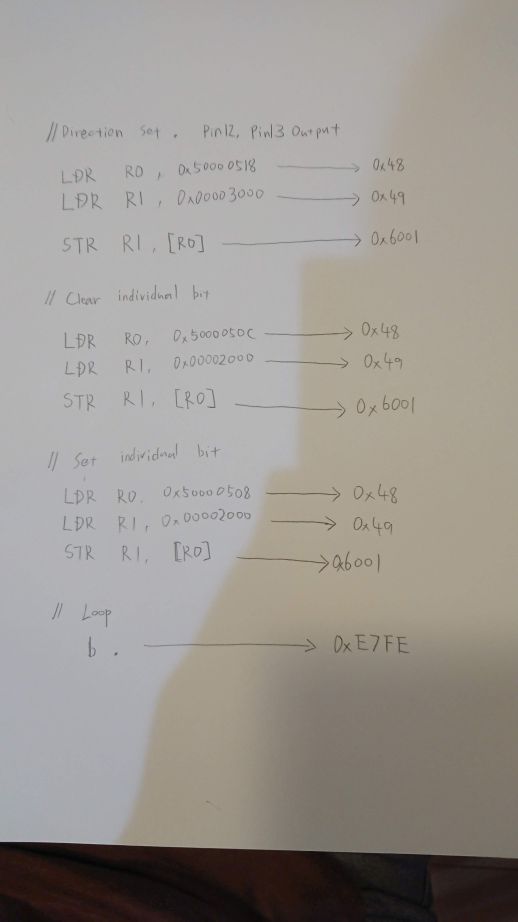 // Direction Set . Pin12, Pin13 Output
LDR R0 , 0x50000518 → 0x48
LDR R1 , 0x00003000 → 0x49
STR R1 , [R0] → 0x6001
// Clear individual bit
LDR R0, 0x5000050C → 0x48
LDR R1, 0x00002000 → 0x49
STR R1, [R0] → 0x6001
// Set individual bit
LDR R0. 0x50000508 → 0x48
LDR R1, 0x00002000 → 0x49
STR R1, [R0] → 0x6001
// Loop
b . → 0xE7FE